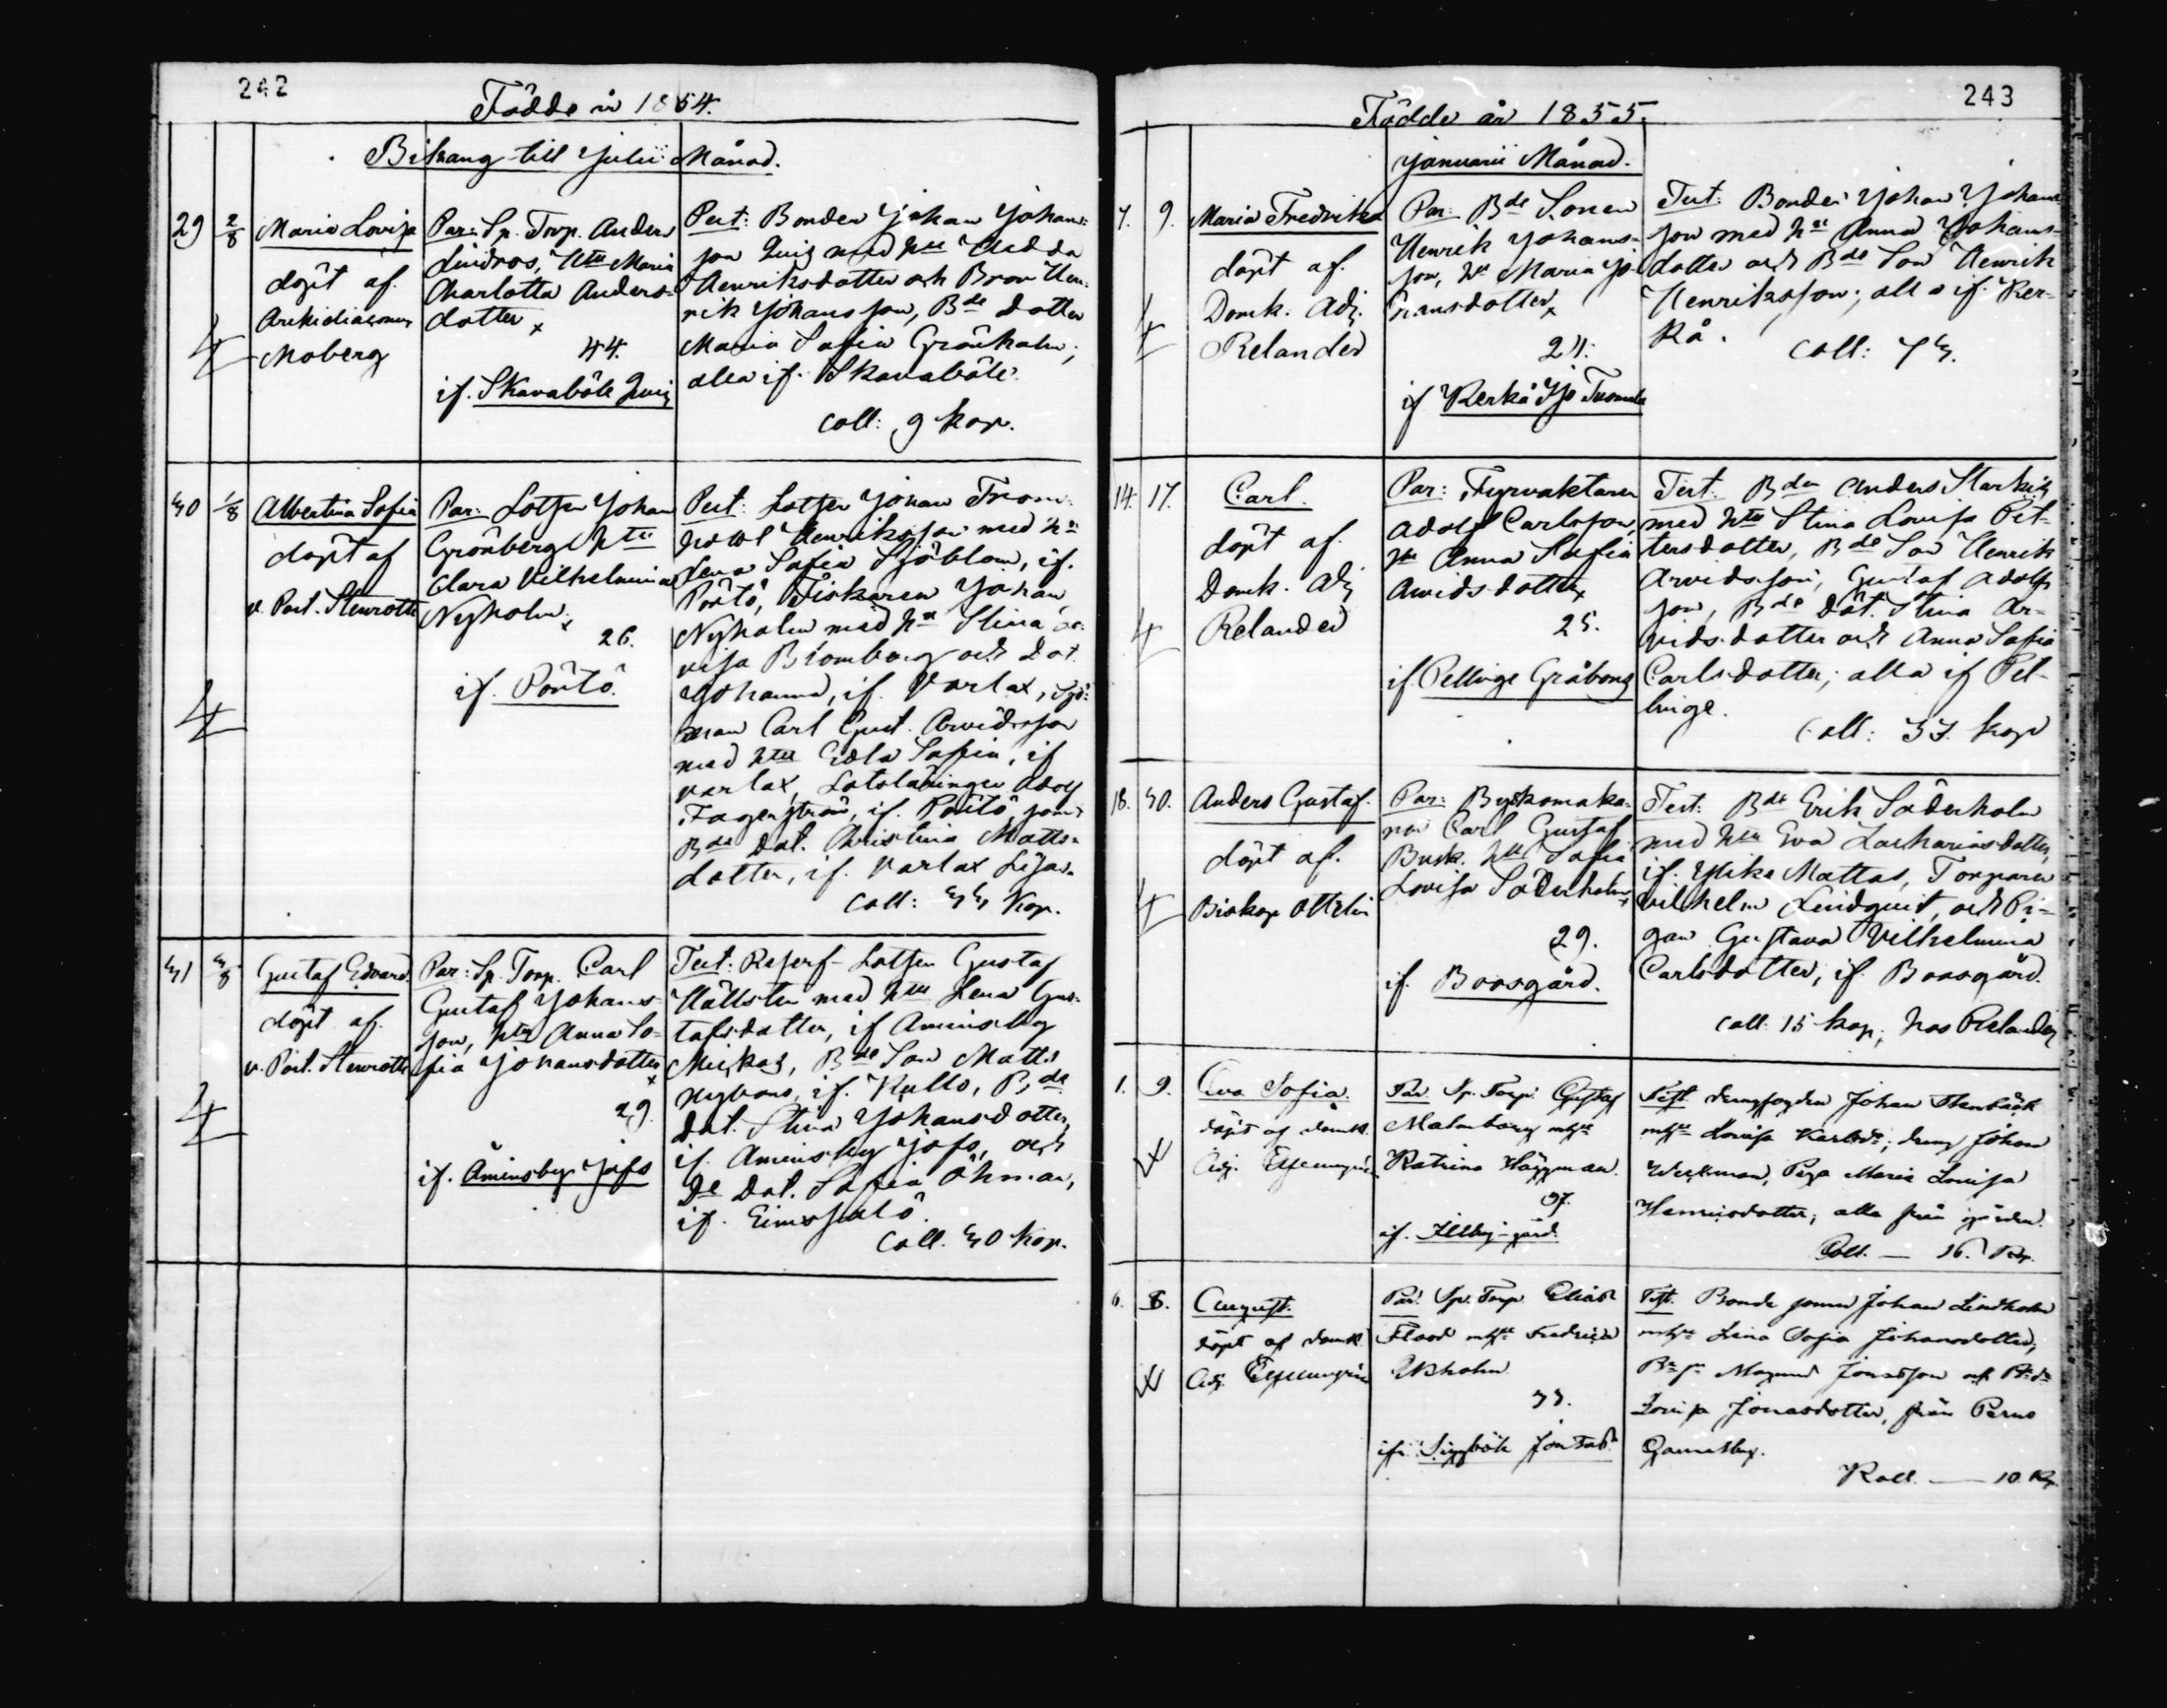 242
Födde år 1854.
Bihang till Julii Månad.
29 2/8
Maria Lovisa
döpt af
Arkidiaconus
Moberg
Par: Sp. Torp. Anders
Lindros, hu Maria
Charlotta Anders-
dotter
44.
if. Skavaböle Qvig
Test: Bonden Johan Johans-
son Qvig med hu Hedda
Henriksdotter och Bron Hen-
rik Johansson, Bde dotter
Maria Sofia Grönholm,
alla if. Skavaböle.
Coll: 9 kop.
30 1/8
Albertina Sofia
döpt af
v. Past. Stenroth
Par: Lotsen Johan
Grönberg hu
Clara Vilhelmina
Nyholm
26.
if. Pörtö.
Test: Lotsen Johan
Henriksson med hu
Lena Sofia Sjöblom, if.
Pörtö, Fiskaren Johan
Nyholm med hu Stina Lo-
visa Bromberg och Dot.
Johanna, if. Varlax, Sjö-
man Carl Gust. Arvidsson
med hu Edla Sofia, if
Varlax, Lotslärlingen Adolf
Fagerström, if. Pörtö, samt
Bde Dot. Christina Matts-
dotter, if. Varlax
Coll: 33 Kop.
31 3/8
Gustaf Edvard
döpt af
v. Past. Stenroth
Par: Sp. Torp. Carl
Gustaf Johans-
son, hu Anna So-
fia Johansdotter
29.
if. Åminsby Jofs
Test: Reserf-Lotsen Gustaf
Hällsten med hu Lena Gus-
tafsdotter, if Åminsby
Mickas, Bde Son Matts
Nybons, if. Kullo, Bde
Dot. Stina Johansdotter,
if. Åminsby Jofs, och
De Dot. Sofia Öhman,
if. Eimssalö.
Coll. 30 kop.
243
Födde år 1855.
Januarii Månad.
7. 9.
Maria Fredrika
döpt af
Domk. Adj.
Relander
Par: Bde Sonen
Henrik Johans-
son, hu Maria Jö-
ransdotter
21.
if Kerko Tuomala
Test: Bonden Johan Johans-
son med hu Anna Johans-
dotter och Bde Son Henrik
Henriksson; alla if. Ker-
ko.
Coll: 73.
14. 17.
Carl.
döpt af
Domk. Adj
Relander
Par: Fyrvaktaren
Adolf Carlsson,
hu Anna Sofia
Arvidsdotter
25.
if Pellinge Gråbergs
Test: Bden Anders Starkis
med hu Stina Lovisa Pet-
tersdotter, Bde Son Henrik
Arvidsson, Gustaf Adolfs
son, Bde Dot. Stina Ar-
vidsdotter och Anna Sofia
Carlsdotter; alla if Pel-
linge.
Coll: 37. kop
18. 30.
Anders Gustaf.
döpt af.
Biskop Ottelin
Par: Byxmaka-
ren Carl Gustaf
Busk. hu Sofia
Lovisa Söderholm
29.
if. Boosgård.
Test: Bde Erik Söderholm
med hu Eva Zachariasdotter,
if. Yliks Mattas, Torparen
Vilhelm Lindqvist, och Pi-
gan Gustava Vilhelmina
Carlsdotter, if. Boosgård.
Coll: 15 kop, hos Relander
1. 9.
Eva Sofia.
döpt af domk.
Adj.
Par. Sp. Torp. Gustaf
Malmberg m hu
Katrina Häggman.
37.
if. Illby-gård.
Test. drengfogden Johan Stenbäck
m hu Lovisa Karlsdr; dreng Johan
Weckman, Piga Maria Lovisa
Henriksdotter; alla från gården.
Coll. — 16. Kop.
6. 8.
August.
döpt af domk.
Adj.
Par. Sp. Torp Elias
Flood m hu Fredrica
Ekholm
33.
ifr. Siggböle Jontas
Test. Bonde sonen Johan Lindholm
m hu Lena Sofia Johansdotter,
Bde sn Magnus Jonasson och Bde dr
Lovisa Jonasdotter, från Perno
Gammelby.
Koll. — 10. Kop.